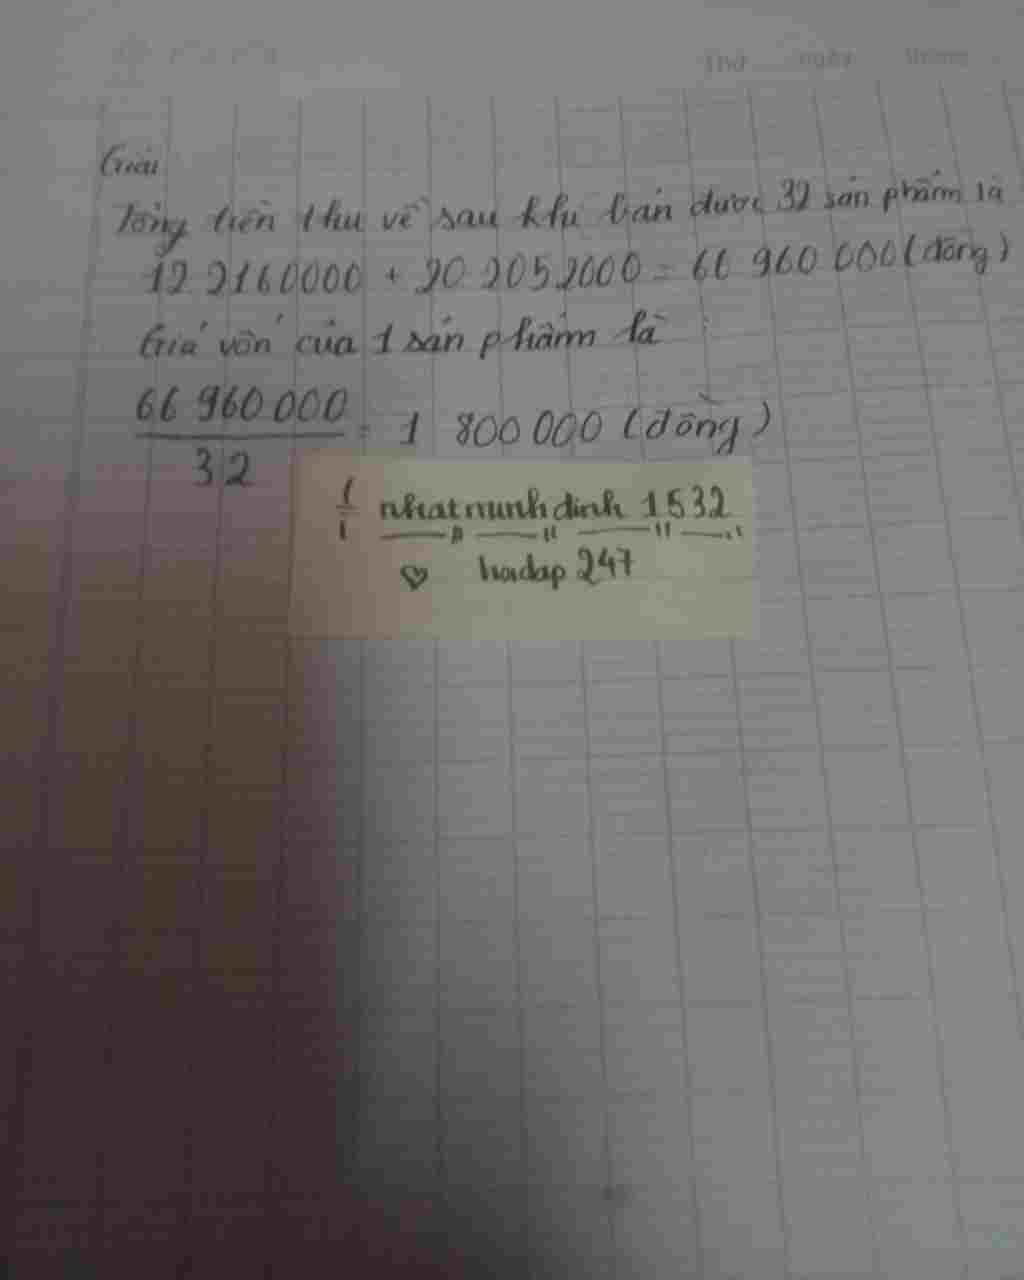 Thứ ngày tháng
Giải
Tổng tiền thu về sau khi bán được 32 sản phẩm là
12.2160000 + 20.2052000 = 66 960 000 (đồng)
Giá vốn của 1 sản phẩm là :
66 960 000
32
= 1 800 000 (đồng)
nhatminhdinh 1532
♡ hoidap 247